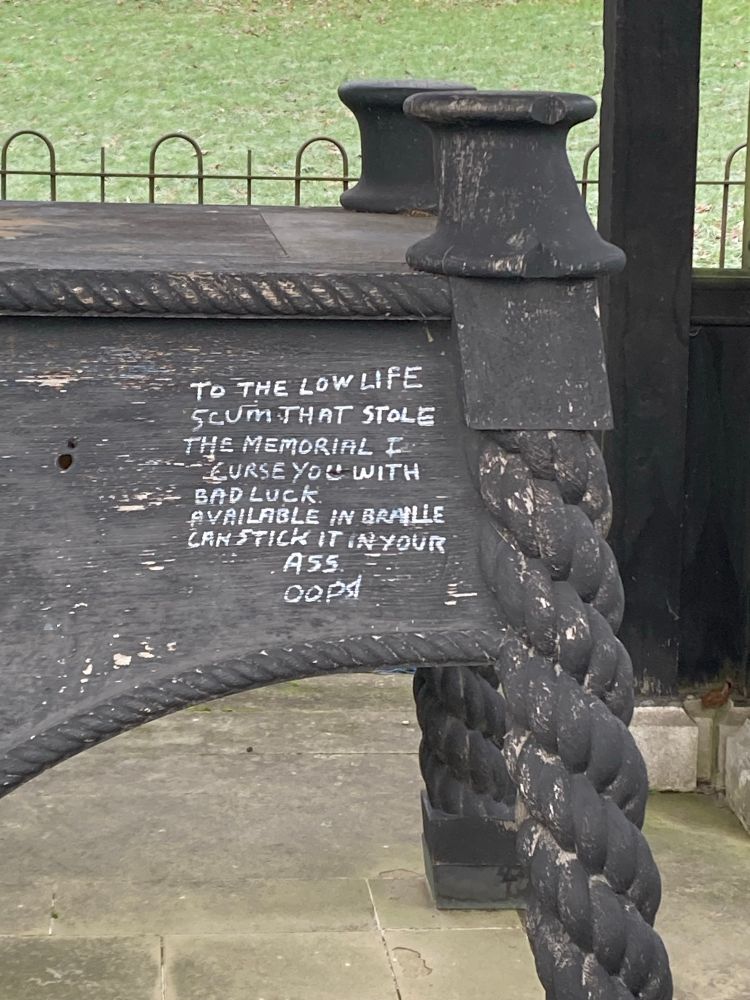 TO THE LOW LIFE
SCUM THAT STOLE
THE MEMORIAL I
CURSE YOU WITH
BAD LUCK.
AVAILABLE IN BRAILLE
CAN STICK IT IN YOUR
ASS.
OOPS!